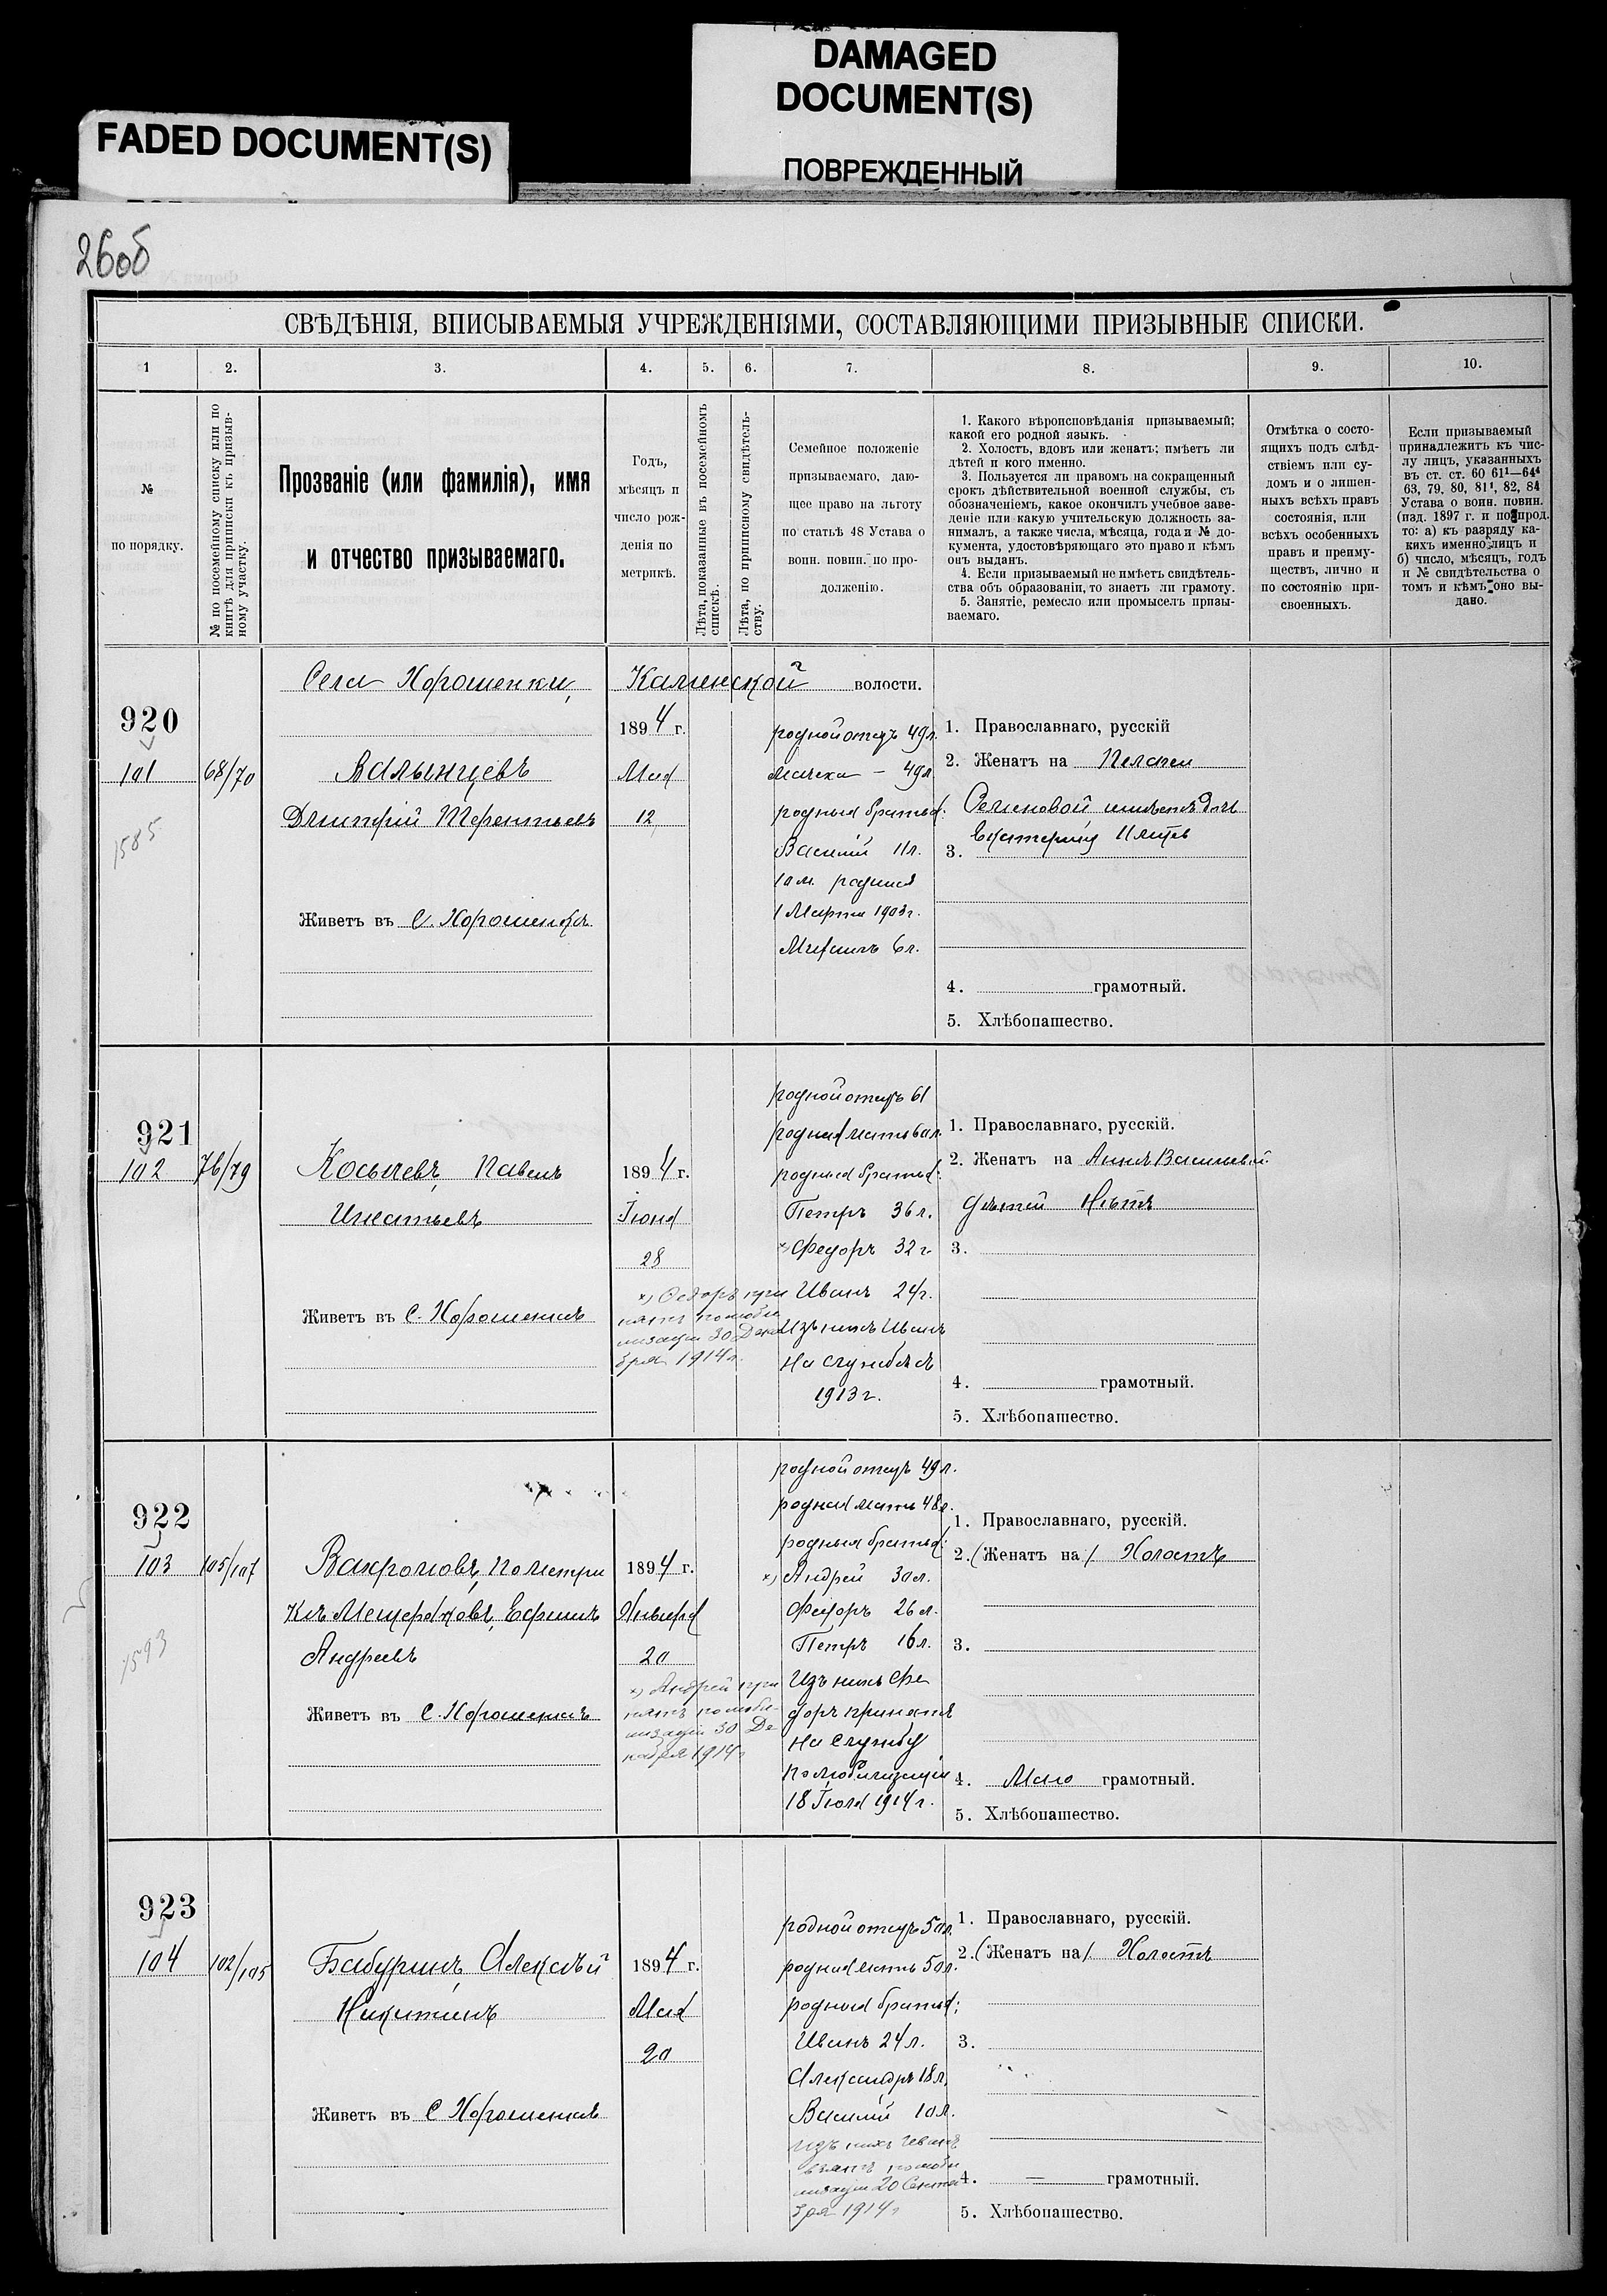 DAMAGED
DOCUMENT(S)
ПОВРЕЖДЕННЫЙ
FADED DOCUMENT(S)
26об
СВѢДѢНІЯ, ВПИСЫВАЕМЫЯ УЧРЕЖДЕНІЯМИ, СОСТАВЛЯЮЩИМИ ПРИЗЫВНЫЕ СПИСКИ.
1 2. 3. 4. 5. 6. 7. 8. 9. 10.
№
по порядку.
№ по посемейному списку или по
книгѣ для приписки къ призыв-
ному участку.
Прозваніе (или фамилія), имя
и отчество призываемаго.
Годъ,
мѣсяцъ и
число рож-
денія по
метрикѣ.
Лѣта, показанные въ посемейномъ
спискѣ.
Лѣта, по приписному свидѣтель-
ству.
Семейное положеніе
призываемаго, даю-
щее право на льготу
по статьѣ 48 Устава о
воин. повин. по про-
долженію.
1. Какого вѣроисповѣданія призываемый;
какой его родной языкъ.
2. Холостъ, вдовъ или женатъ; имѣетъ ли
дѣтей и кого именно.
3. Пользуется ли правомъ на сокращенный
срокъ дѣйствительной военной службы, съ
обозначеніемъ, какое окончилъ учебное заве-
деніе или какую учительскую должность за-
нималъ, а также числа, мѣсяца, года и № до-
кумента, удостовѣряющаго это право и кѣмъ
онъ выданъ.
4. Если призываемый не имѣетъ свидѣтель-
ства объ образованіи, то знаетъ ли грамоту.
5. Занятіе, ремесло или промыселъ призы-
ваемаго.
Отмѣтка о состо-
ящихъ подъ слѣд-
ствіемъ или су-
домъ и о лишен-
ныхъ всѣхъ правъ
состоянія, или
всѣхъ особенныхъ
правъ и преиму-
ществъ, лично и
по состоянію при-
своенныхъ.
Если призываемый
принадлежитъ къ чис-
лу лицъ, указанныхъ
въ ст. ст. 60 61¹—64⁴
63, 79, 80, 81¹, 82, 84
Устава о воин. повин.
(изд. 1897 г. и по прод.
то: а) къ разряду ка-
кихъ именно лицъ и
б) число, мѣсяцъ, годъ
и № свидѣтельства о
томъ и кѣмъ оно вы-
дано.
Села Хорошенки, Каменской волости.
920
101 68/70
1585
Валынцевъ
Дмитрій Терентьевъ
Живетъ въ С. Хорошенкѣ
1894 г.
Мая
12
родной отецъ 49 л.
мачеха — 49 л
родныя братья:
Василій 11 л.
10 м. родился
1 Марта 1903 г.
6 л.
1. Православнаго, русскій
2. Женатъ на Пелагеи
Семеновой имѣетъ дочь
Екатерину
3.
4. грамотный.
5. Хлѣбопашество.
921
102 76/79
Косычевъ, Павелъ
Игнатьевъ
Живетъ въ С. Хорошенкѣ
1894 г.
Іюня
28
х) Ѳедоръ при
нятъ по моби
лизаціи 30 Дека
бря 1914 г.
родной отецъ 61
родная мать 60 л.
родныя братья:
Петръ 36 л.
х) Федоръ 32 г
Иванъ 24 г.
Изъ нихъ Иванъ
на службѣ съ
1913 г.
1. Православнаго, русскій.
2. Женатъ на Аннѣ Васильевой.
дѣтей Нѣтъ
3.
4. грамотный.
5. Хлѣбопашество.
922
103 105/107
1593
Вахромовъ, по метри
кѣ Мещеряковъ, Ефимъ
Андреевъ
Живетъ въ С. Хорошенкѣ
1894 г.
Января
20
х) Андрей при
нятъ по моби-
лизаціи 30 Де
кабря 1914 г
родной отецъ 49 л.
родная мать 48 л.
родныя братья:
х) Андрей 30 л.
Федоръ 26 л.
Петръ 16 л.
Изъ нихъ Фе
доръ принятъ
на службу
по мобилизаціи
18 Іюля 1914 г.
1. Православнаго, русскій.
2. (Женатъ на). Холостъ
3.
4. Мало грамотный.
5. Хлѣбопашество.
923
104 102/105
Бабуринъ, Алексѣй
Никитинъ
Живетъ въ С Хорошенкѣ
1894 г.
Мая
20
родной отецъ 50 л.
родная мать 50 л.
родныя братья:
Иванъ 24 л.
Александръ 18 л.
Василій 10 л.
Изъ нихъ Иванъ
взятъ по моби
лизаціи 20 Сентя
бря 1914 г
1. Православнаго, русскій.
2. (Женатъ на). Холостъ
3.
4. — грамотный.
5. Хлѣбопашество.